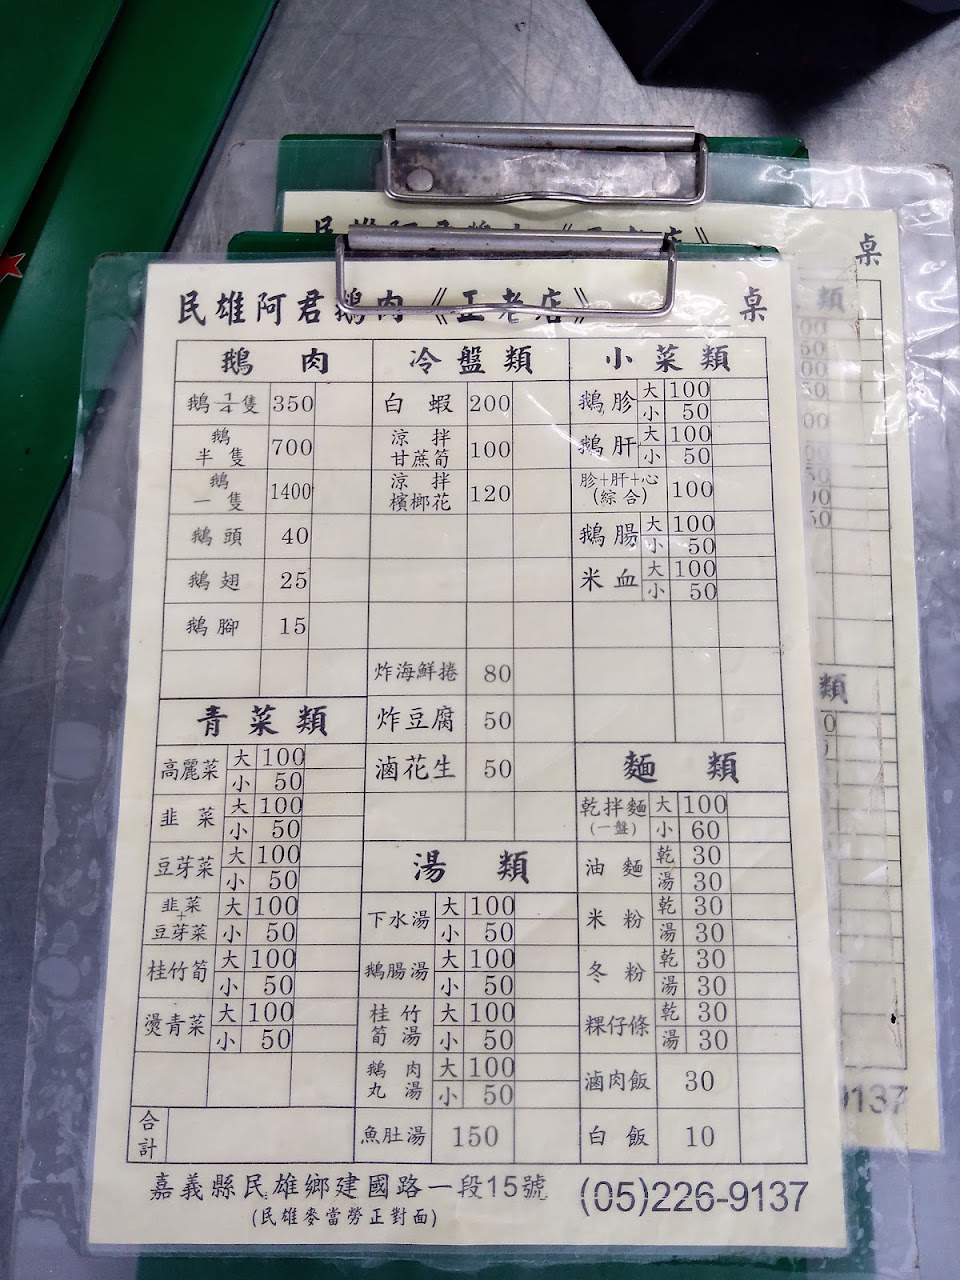 民雄阿君鵝肉《正老店》 桌
鵝肉
鵝¼隻 350
鵝半隻 700
鵝一隻 1400
鵝頭 40
鵝翅 25
鵝腳 15
青菜類
高麗菜 大 100
小 50
韭菜 大 100
小 50
豆芽菜 大 100
小 50
韭菜+豆芽菜 大 100
小 50
桂竹筍 大 100
小 50
燙青菜 大 100
小 50
合計
冷盤類
白蝦 200
涼拌甘蔗筍 100
涼拌檳榔花 120
炸海鮮捲 80
炸豆腐 50
滷花生 50
湯類
下水湯 大 100
小 50
鵝腸湯 大 100
小 50
桂竹筍湯 大 100
小 50
鵝肉丸湯 大 100
小 50
魚肚湯 150
小菜類
鵝胗 大 100
小 50
鵝肝 大 100
小 50
胗+肝+心(綜合) 100
鵝腸 大 100
小 50
米血 大 100
小 50
麵類
乾拌麵(一盤) 大 100
小 60
油麵 乾 30
湯 30
米粉 乾 30
湯 30
冬粉 乾 30
湯 30
粿仔條 乾 30
湯 30
滷肉飯 30
白飯 10
嘉義縣民雄鄉建國路一段15號 (05)226-9137
(民雄麥當勞正對面)
桌
類
類
9137